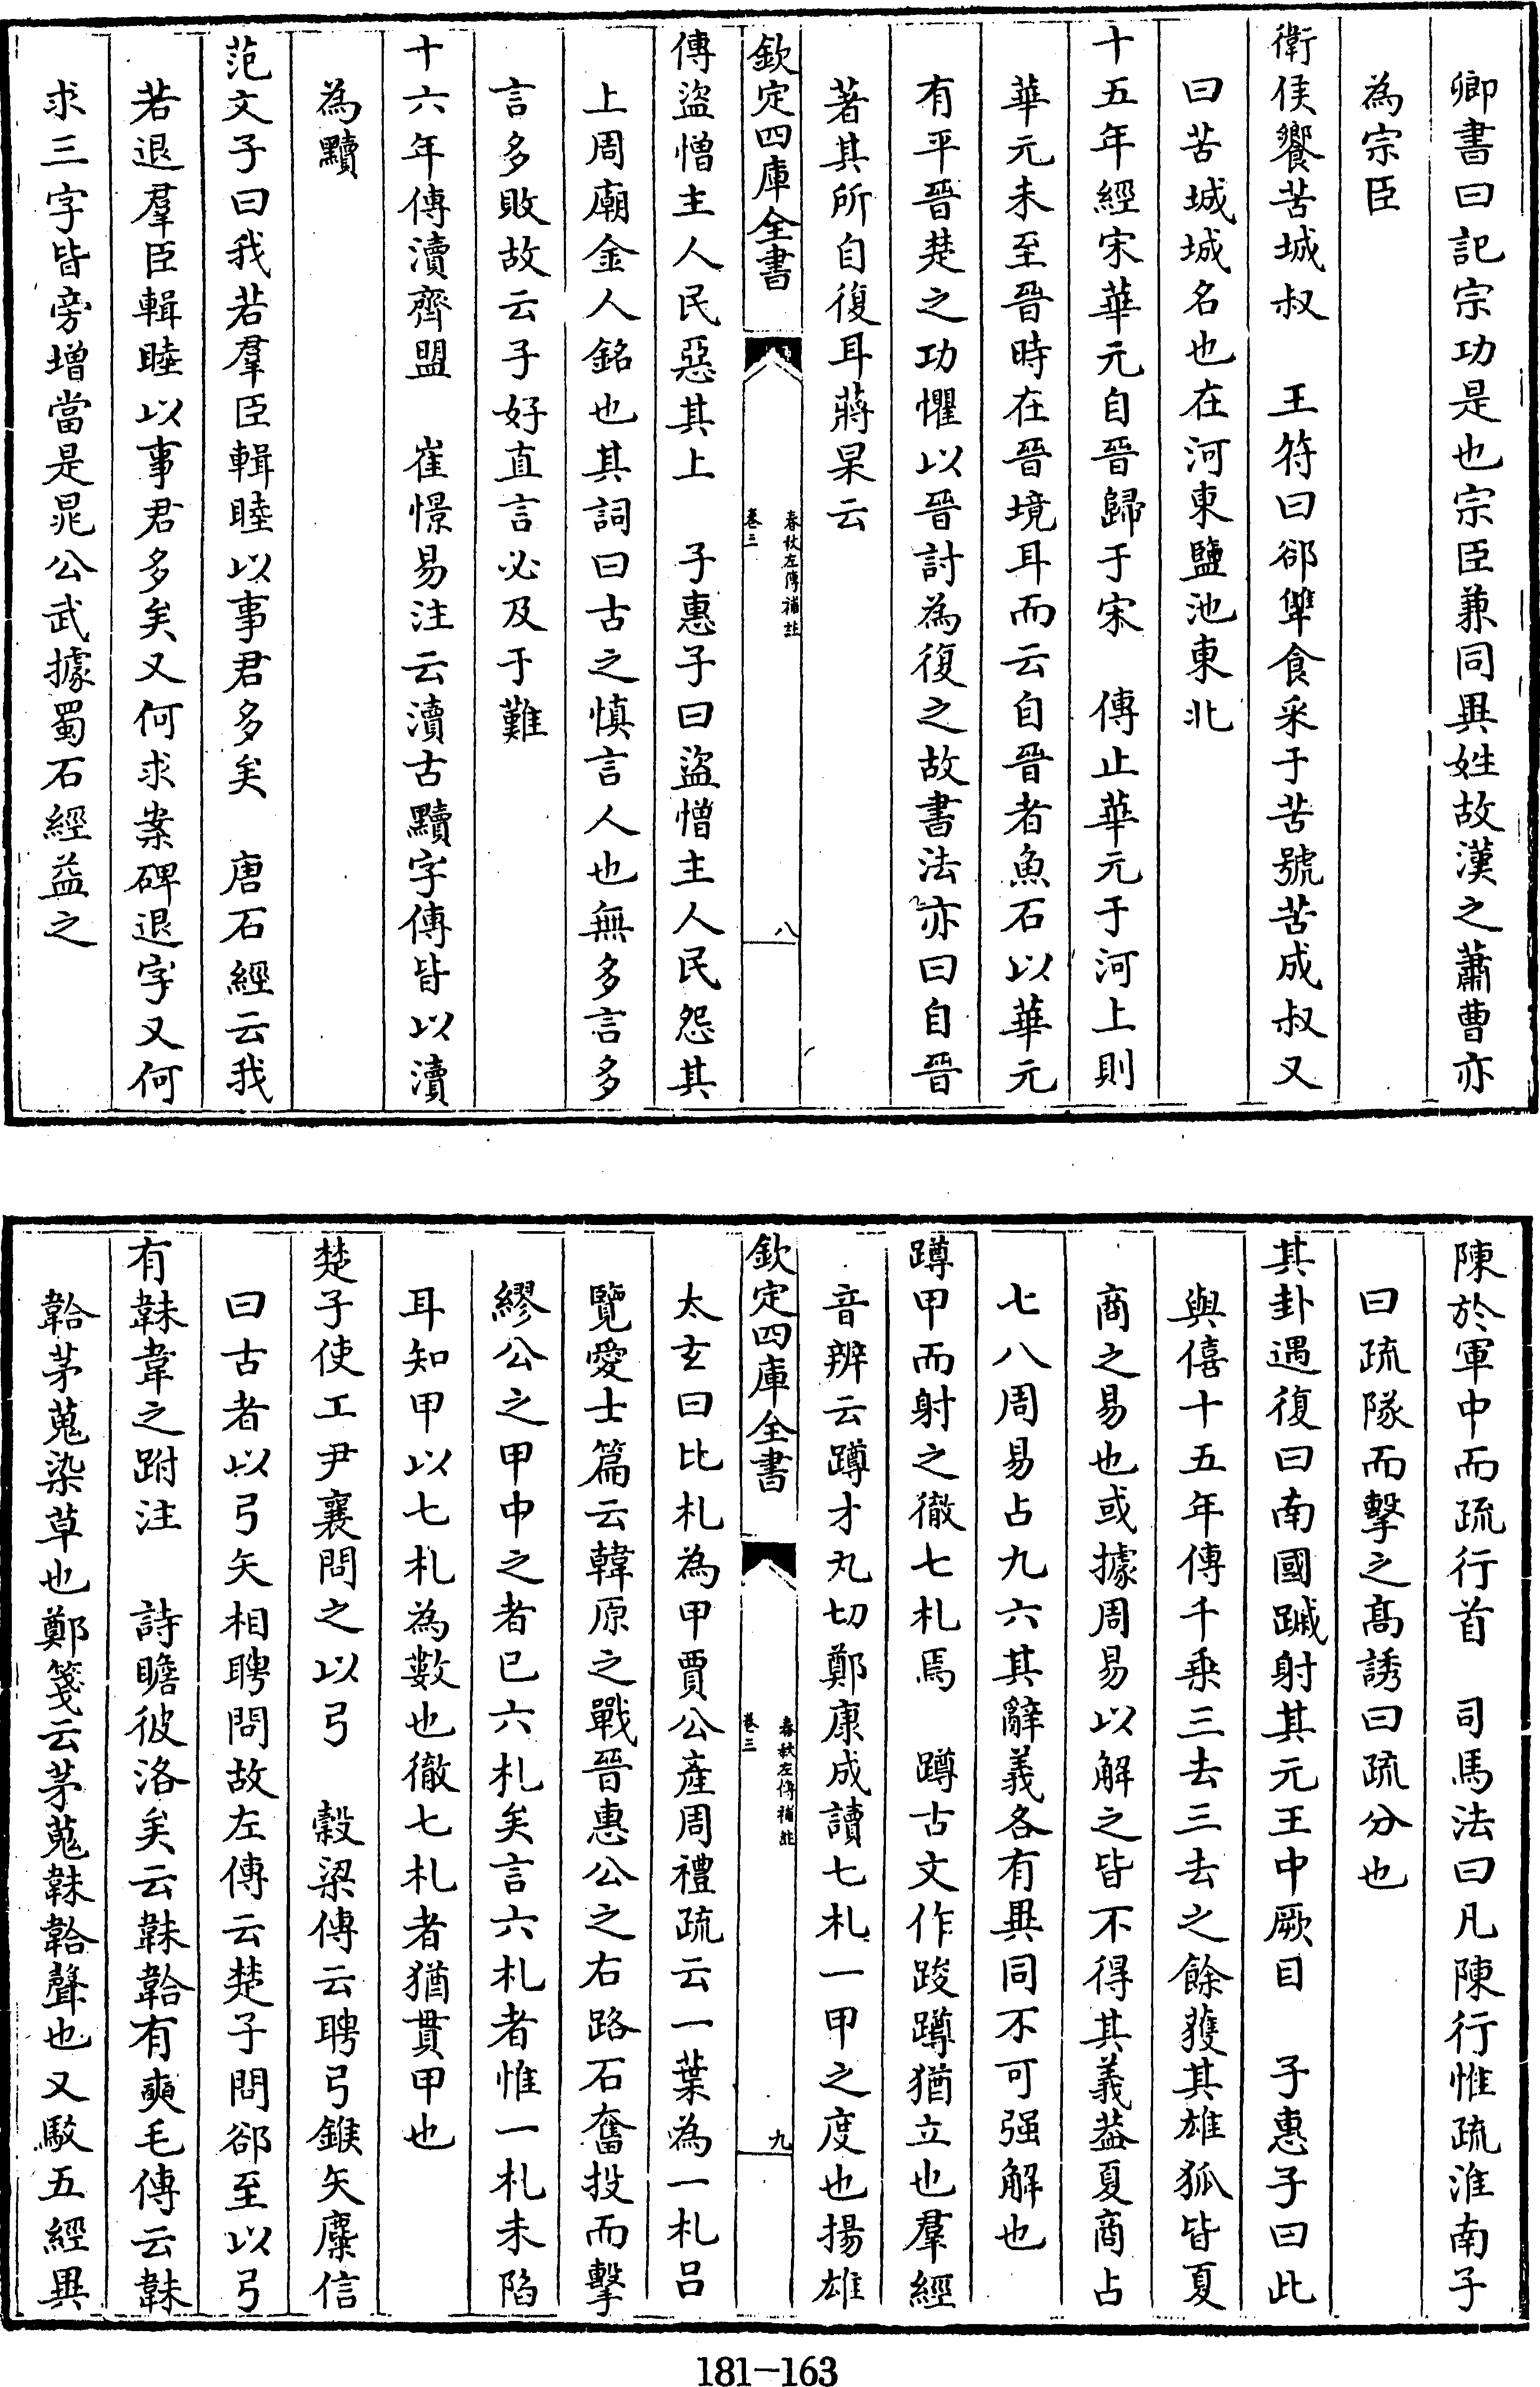 卿書曰記宗功是也宗臣兼同異姓故漢之蕭曹亦
為宗臣
衛侯饗苦城叔　王符曰郤犨食采于苦號苦成叔又
曰苦城城名也在河東鹽池東北
十五年經宋華元自晉歸于宋　傳止華元于河上則
華元未至晉時在晉境耳而云自晉者魚石以華元
有平晉楚之功懼以晉討為復之故書法亦曰自晉
著其所自復耳蔣杲云
欽定四庫全書
春秋左傳補註
卷三
八
傳盜憎主人民惡其上　子惠子曰盜憎主人民怨其
上周廟金人銘也其詞曰古之慎言人也無多言多
言多敗故云子好直言必及于難
十六年傳瀆齊盟　崔憬易注云瀆古黷字傳皆以瀆
為黷
范文子曰我若羣臣輯睦以事君多矣　唐石經云我
若退羣臣輯睦以事君多矣又何求案碑退字又何
求三字皆旁增當是晁公武據蜀石經益之
陳於軍中而疏行首　司馬法曰凡陳行惟疏淮南子
曰疏隊而擊之高誘曰疏分也
其卦遇復曰南國蹙射其元王中厥目　子惠子曰此
與僖十五年傳千乘三去三去之餘獲其雄狐皆夏
商之易也或據周易以解之皆不得其義葢夏商占
七八周易占九六其辭義各有異同不可强解也
蹲甲而射之徹七札焉　蹲古文作踆蹲猶立也羣經
音辨云蹲才丸切鄭康成讀七札一甲之度也揚雄
欽定四庫全書
春秋左傳補註
卷三
九
太玄曰比札為甲賈公產周禮疏云一葉為一札呂
覽愛士篇云韓原之戰晉惠公之右路石奮投而擊
繆公之甲中之者已六札矣言六札者惟一札未陷
耳知甲以七札為數也徹七札者猶貫甲也
楚子使工尹襄問之以弓　穀梁傳云聘弓鍭矢麋信
曰古者以弓矢相聘問故左傳云楚子問郤至以弓
有韎韋之跗注　詩瞻彼洛矣云韎韐有奭毛傳云韎
韐茅蒐染草也鄭箋云茅蒐韎韐聲也又駁五經異
181-163